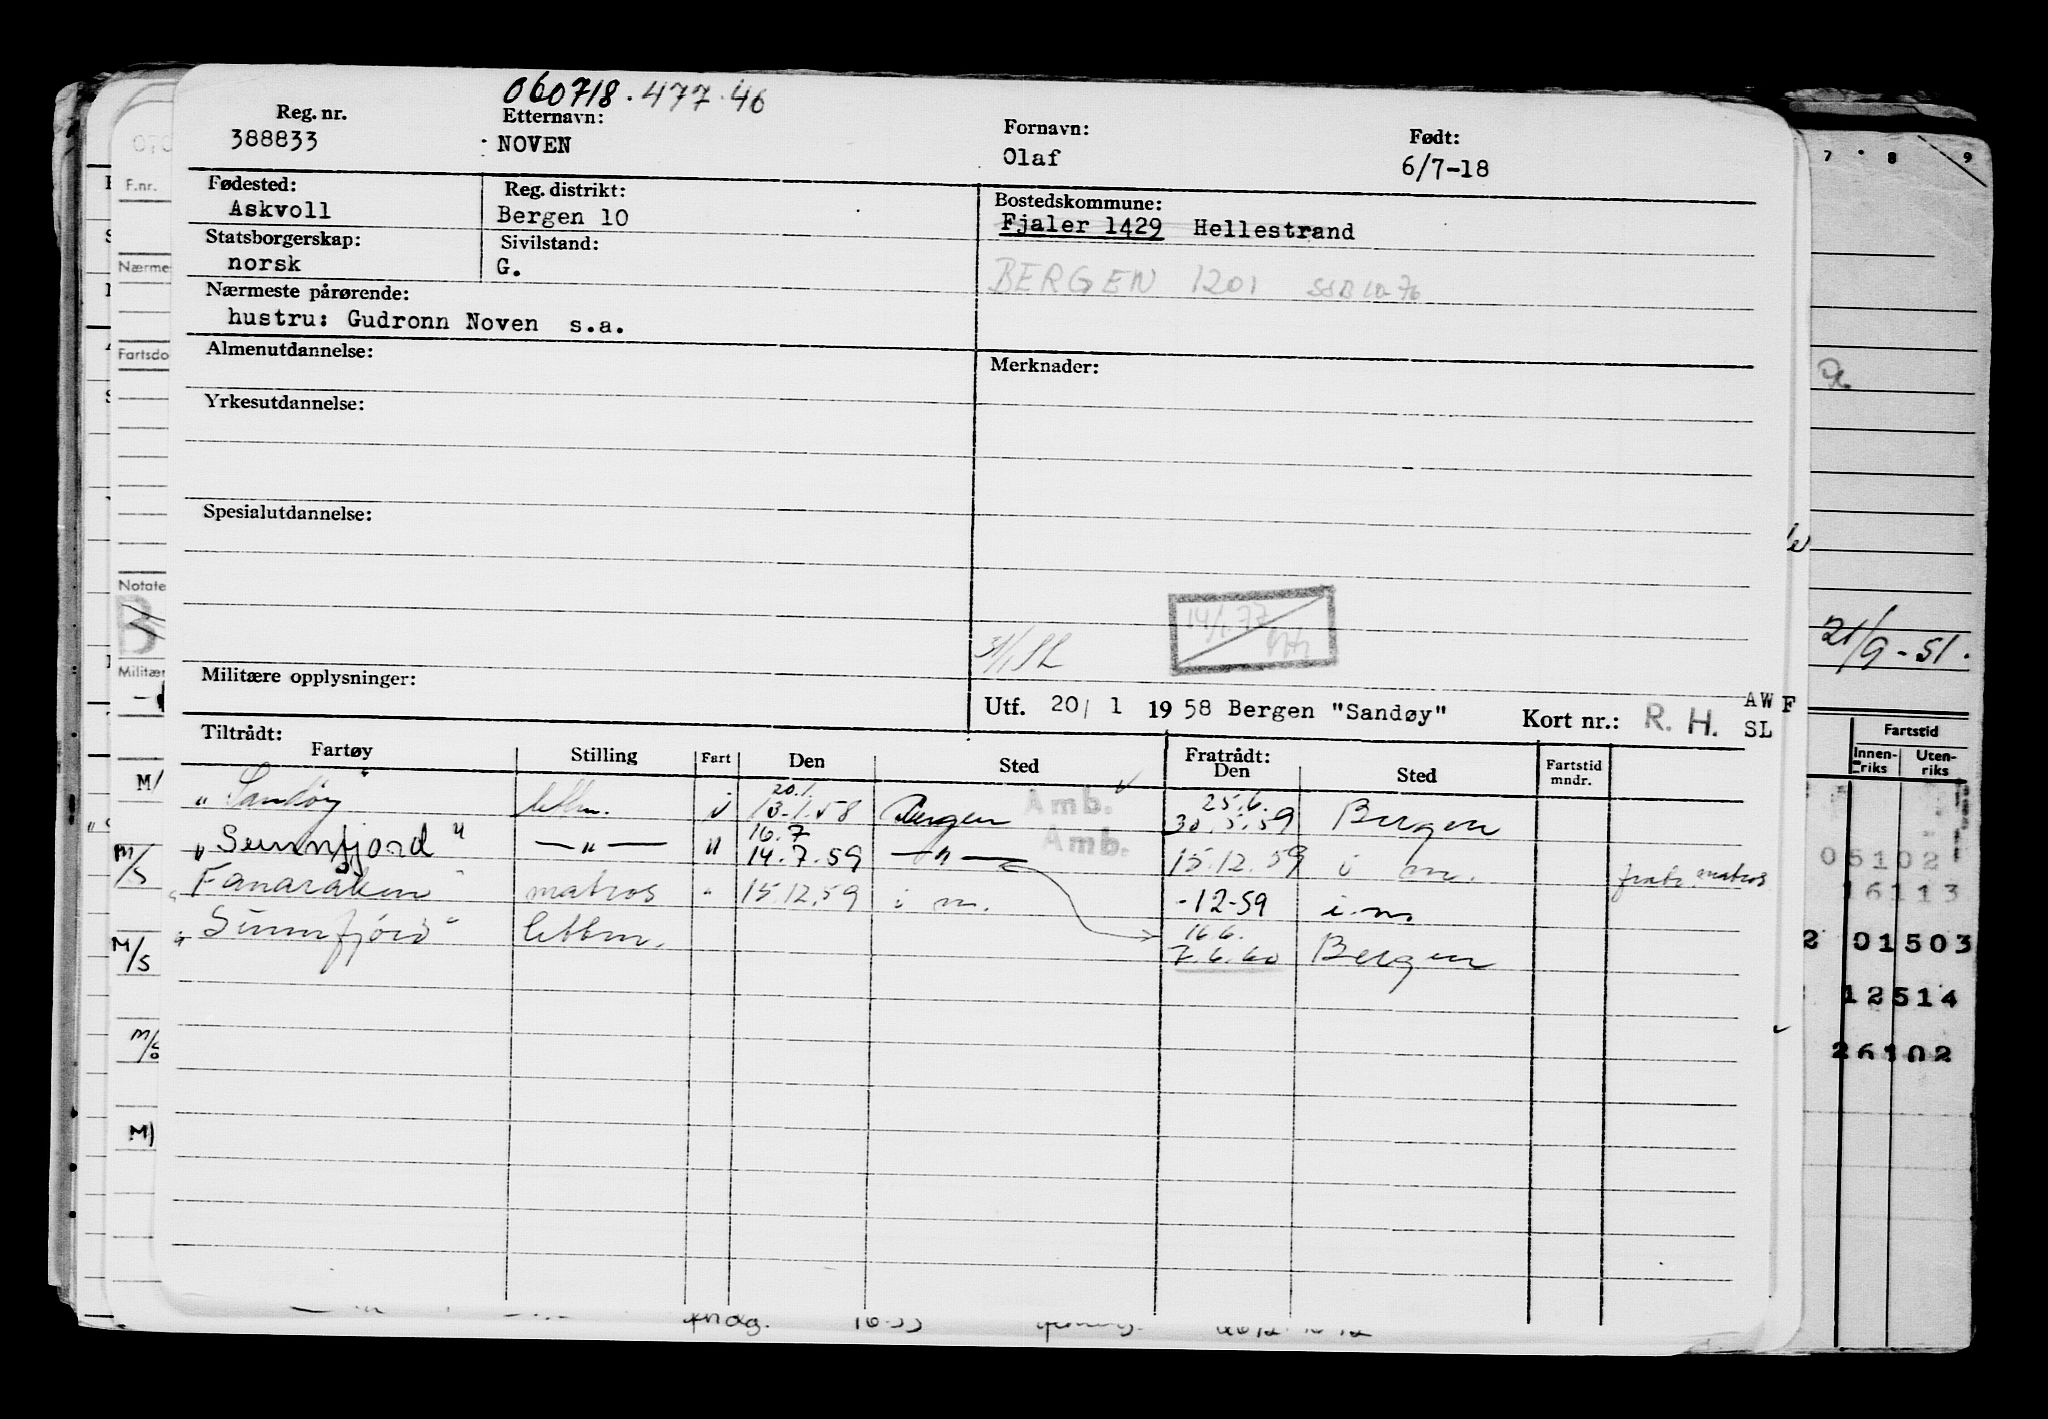 060718.477.46
Reg. nr. Etternavn: Fornavn: Født:
388833 NOVEN Olaf 6/7-18
Fødested: Reg. distrikt: Bostedskommune:
Askvoll Bergen 10 Fjaler 1429 Hellestrand
Statsborgerskap: Sivilstand:
norsk G. BERGEN 1201
Nærmeste pårørende:
hustru: Gudronn Noven s.a.
Almenutdannelse: Merknader:
Yrkesutdannelse:
Spesialutdannelse:
14/1.77
Militære opplysninger:
Utf. 20/ 1 1958 Bergen "Sandøy" Kort nr.: R. H. AW F
SL
Tiltrådt: Fratrådt:
Fartøy Stilling Fart Den Sted Den Sted Fartstid mndr.
20.1. Amb. 25.6.
"Sandøy" lettm. i 13.1.58 Bergen 30.5.59 Bergen
16.7 Amb.
"Sunnfjord" —"— " 14.7.59 —"— 15.12.59 i m. fratr. matros
"Fanaråken" matros " 15.12.59 i m. -12-59 i.m.
16.6.
"Sunnfjord" lettm. 7.6.60 Bergen
F.nr.
Nærme
Fartsdo
Notate
B
Militær
M/
M/S
M/S
M/
M)
7 8 9
21/9-51.
Fartstid
Innen-riks Uten-riks
05102
16113
2 01503
12514
26102